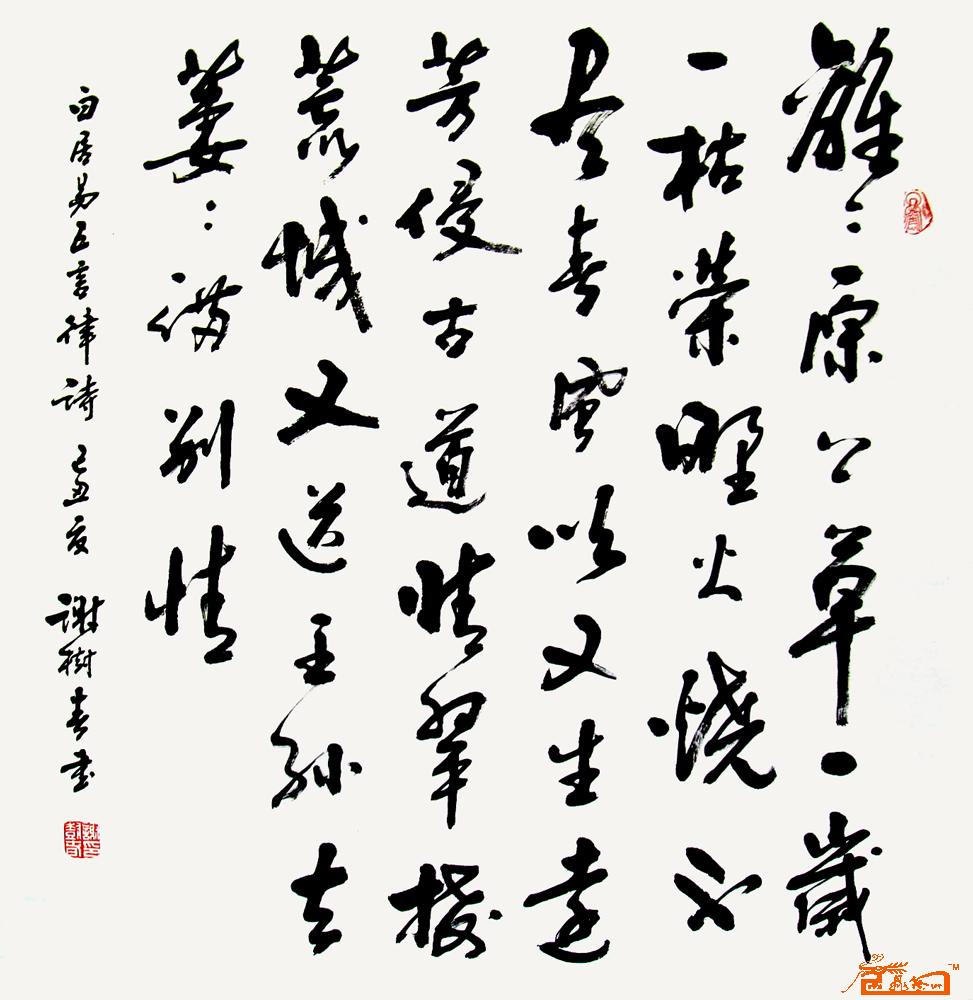 離〻原上草一歲
一枯榮野火燒不
尽春風吹又生遠
芳侵古道晴翠接
荒城又送王孫去
萋〻滿別情
白居易五言律詩 己丑夏 謝樹春書